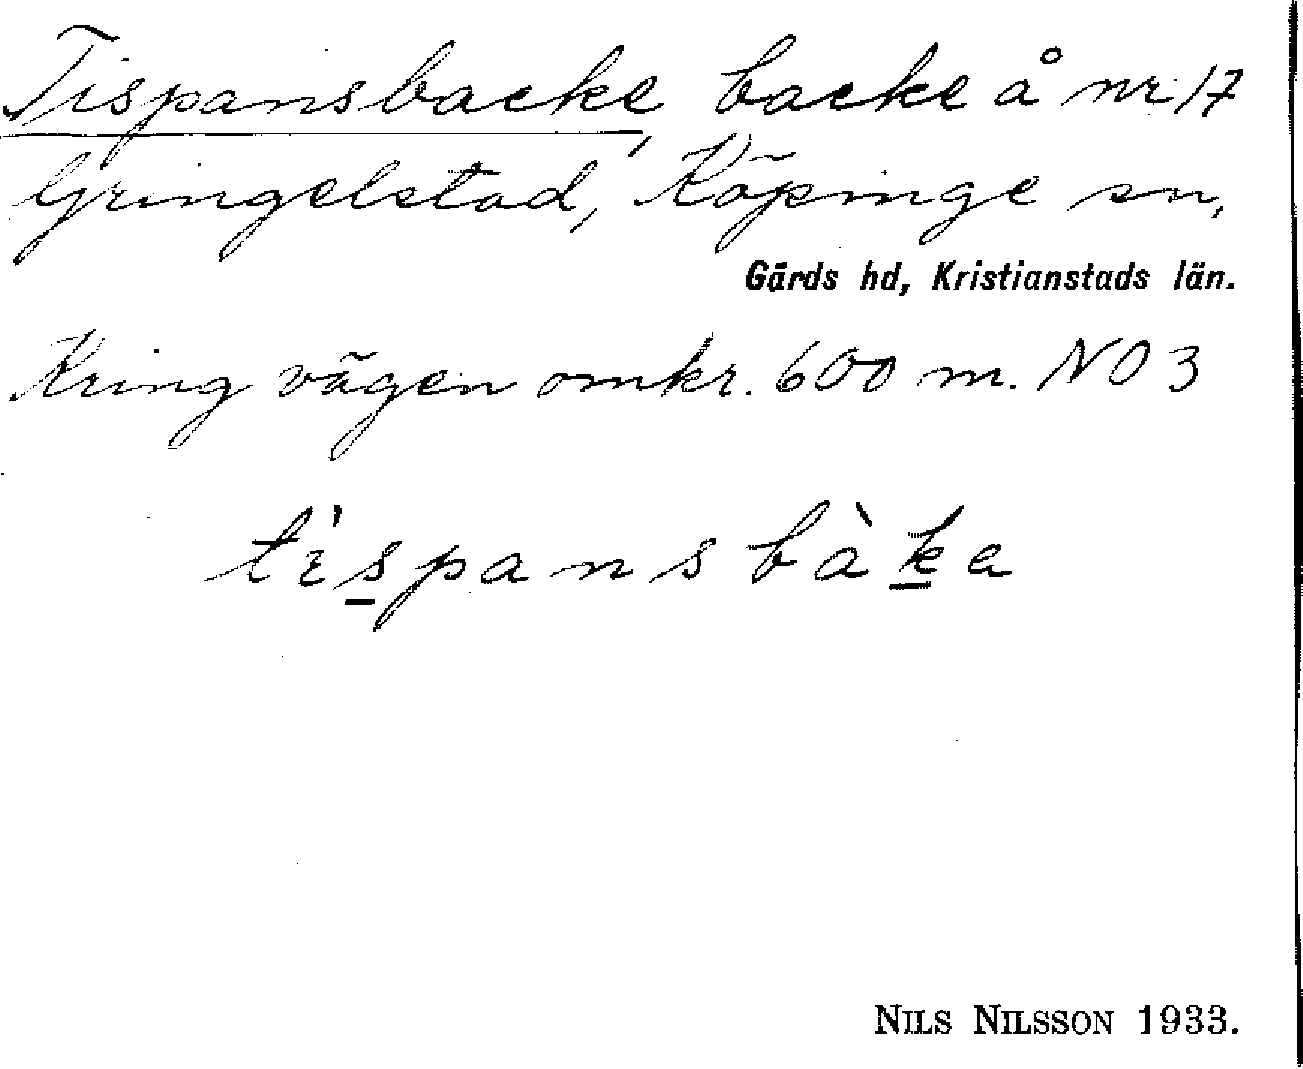 Tispansbacke, backe å nr 17
Gringelstad, Köpinge sn,
Gärds hd, Kristianstads län.
Kring vägen omkr. 600 m. NO 3
tìspansbàka
NILS NILSSON 1933.